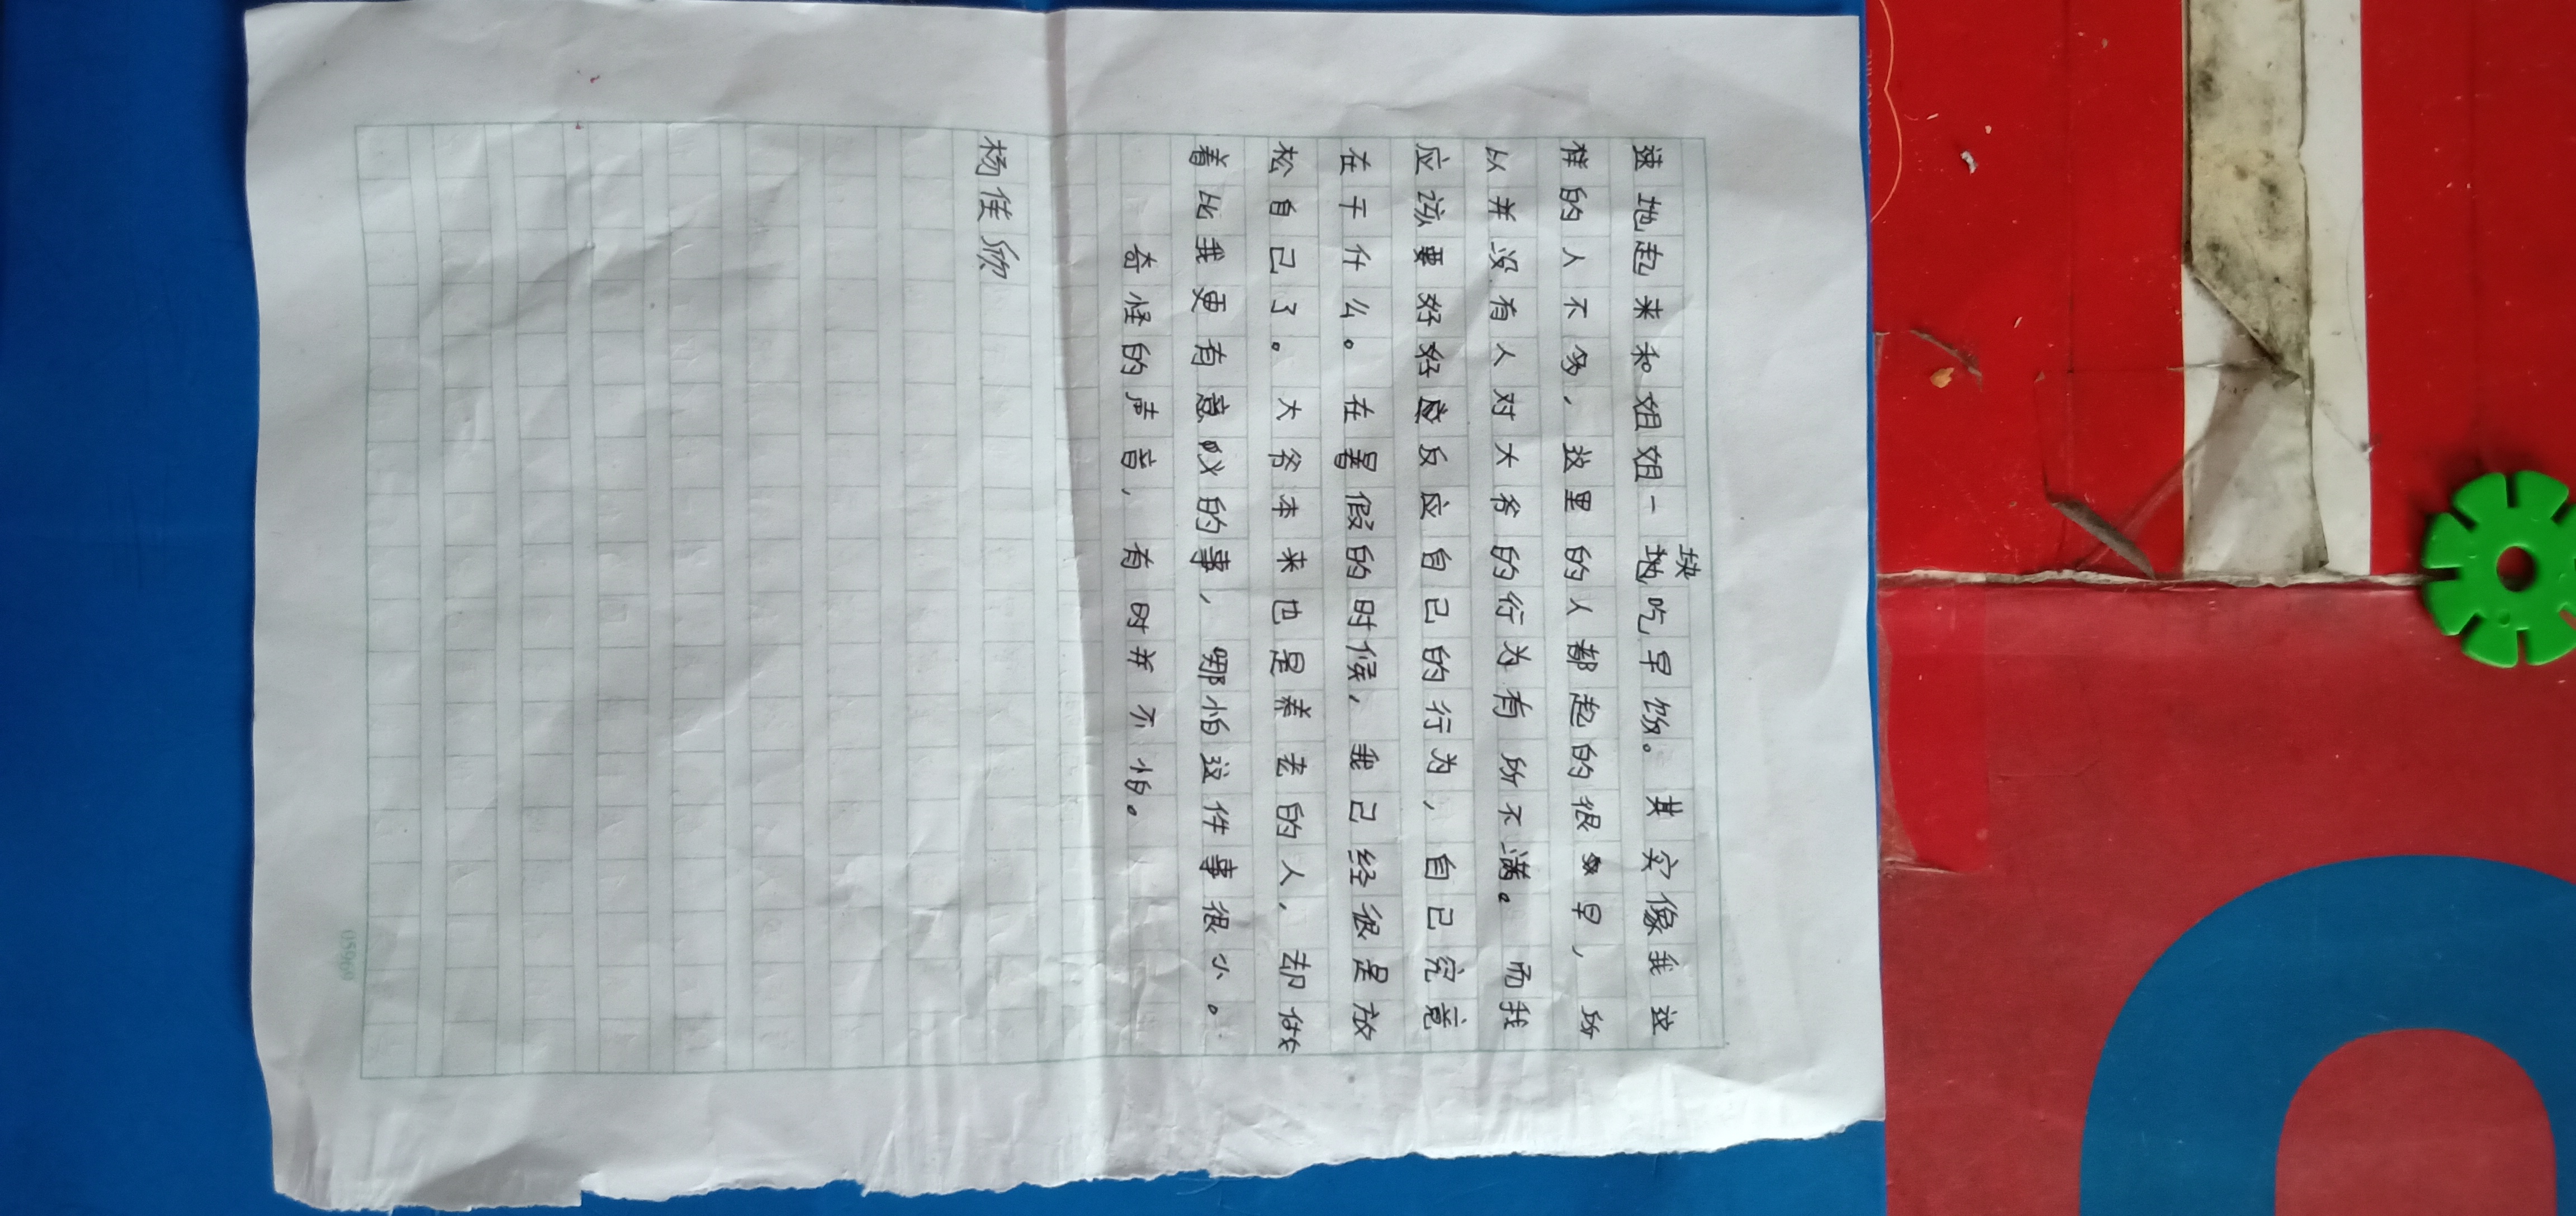 速地起来和姐姐一块吃早饭。其实像我这
样的人不多，这里的人都起的很早，所
以并没有人对大爷的行为有所不满。而我
应该要好好反应自己的行为，自己究竟
在干什么。在暑假的时候，我已经很是放
松自己了。大爷本来也是养老的人，却做
着比我更有意义的事，哪怕这件事很小。
奇怪的声音，有时并不怕。
杨佳欣